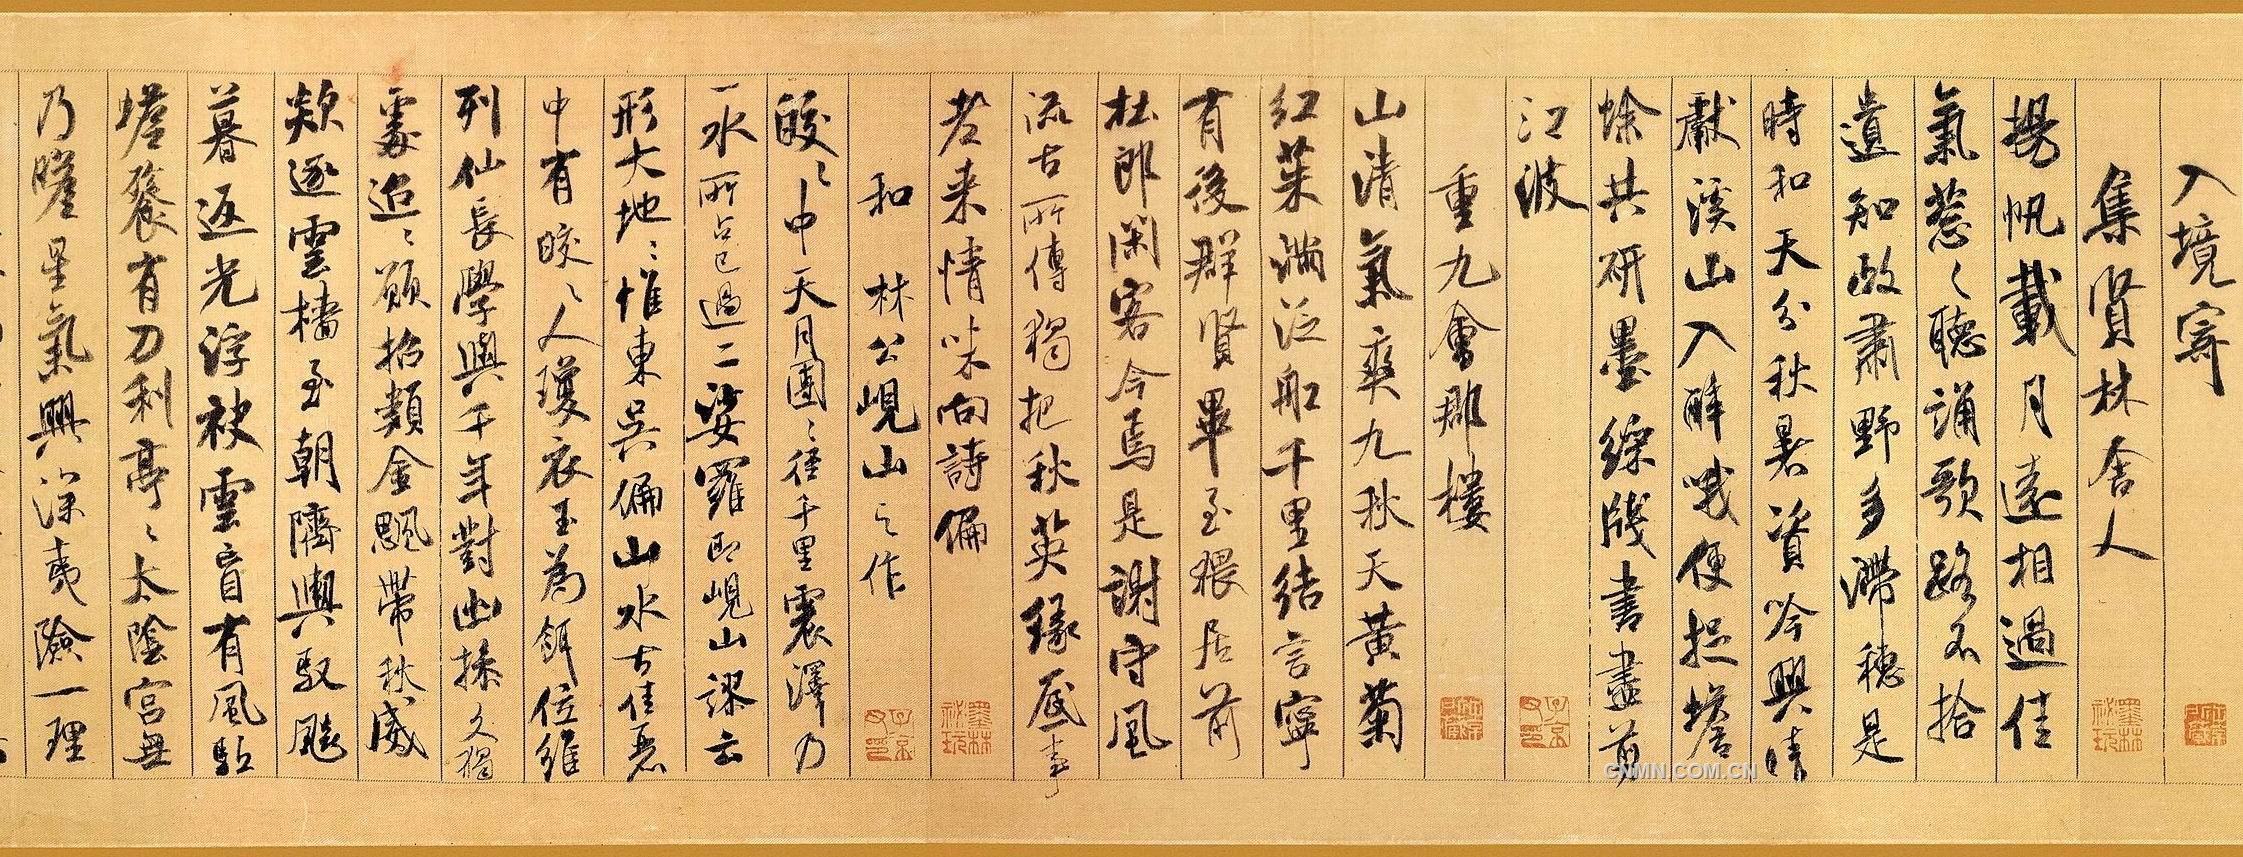 入境寄
集賢林舍人
揚帆載月遠相過佳
氣葱〻聽誦歌路不拾
遺知政肅野多滯穗是
時和天分秋暑資吟興晴
獻溪山入醉哦便捉蟾
蜍共研墨綵牋書盡剪
江波
重九會郡樓
山清氣爽九秋天黃菊
紅茱滿泛船千里結言寧
有後群賢畢至猥居前
杜郎閑客今焉是謝守風
流古所傳獨把秋英緣底事
老来情味向詩偏
和林公峴山之作
皎〻中天月團〻徑千里震澤乃
一水所占已過二娑羅即峴山謬云
形大地〻惟東吳偏山水古佳麗
中有皎〻人瓊衣玉為餌位維
列仙長學與千年對幽操久獨
處迢〻願招類金飈帶秋威
欻逐雲檣至朝隮輿馭飈
暮返光浮袂雲盲有風駈
蟾餮有刀利亭〻太陰宮無
乃瞻星氣興深夷險一理
CNMN.COM.CN